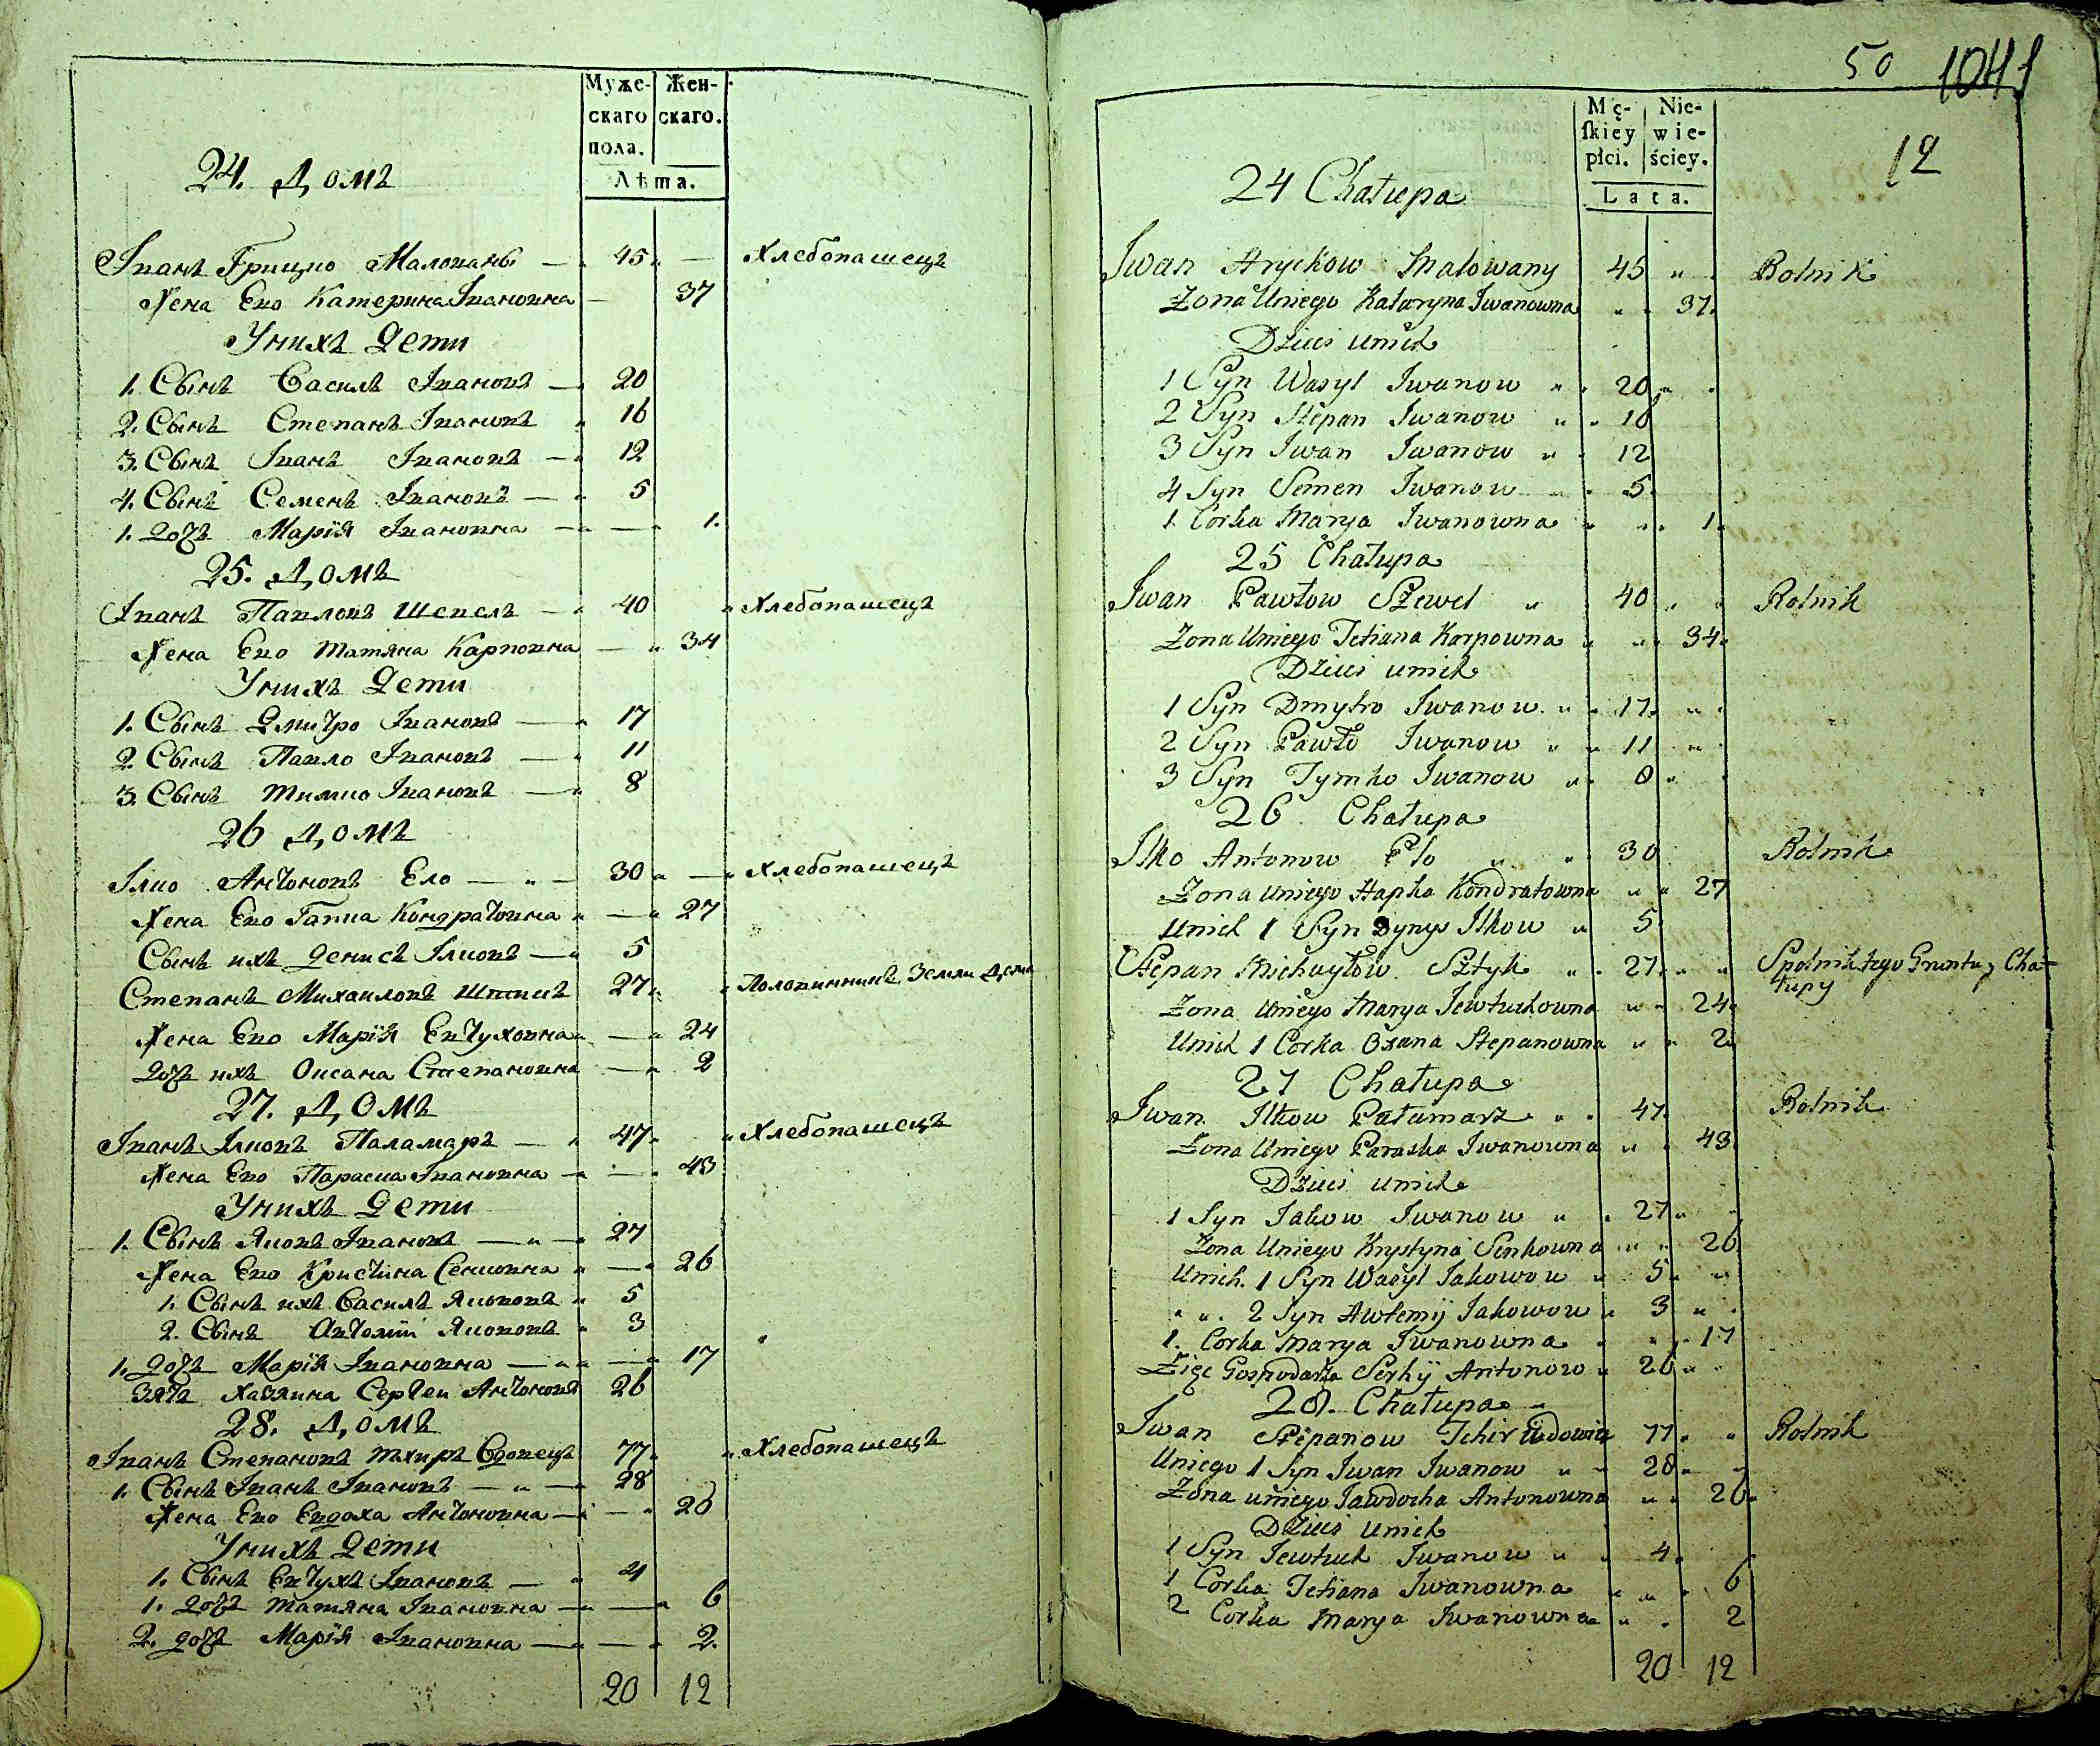 Муже- Жен-
скаго скаго.
пола.
Лѣта.
24. Домъ
Іванъ Грицко Малованы — 45 — Хлебопашецъ
Жена Его Катерина Івановна — 37
Унихъ Дети
1. Сынъ Василъ Івановъ — 20
2. Сынъ Степанъ Івановъ 16
3. Сынъ Іванъ Івановъ — 12
4. Сынъ Семенъ Івановъ — 5
1. Дочъ Марія Івановна — — 1.
25. Домъ
Іванъ Павловъ Шевелъ — 40 Хлебопашецъ
Жена Его Татяна Карповна — 34
Унихъ Дети
1. Сынъ Дмитро Івановъ — 17
2. Сынъ Павло Івановъ — 11
3. Сынъ Тимко Івановъ — 8
26 Домъ
Ілко Антоновъ Ело — " — 30 — Хлебопашецъ
Жена Его Гапка Кондратовна — 27
Сынъ ихъ Денисъ Ілковъ — 5
Степанъ Михайловъ Штикъ 27 Половинникъ Земли Дома
Жена Его Марія Евтуховна — 24
Дочъ ихъ Оксана Степановна — 2
27. Домъ
Іванъ Ілковъ Паламаръ — 47 Хлебопашецъ
Жена Его Параска Івановна — — 43
Унихъ Дети
1. Сынъ Яковъ Івановъ — " — 27
Жена Его Кристина Сенковна — 26
1. Сынъ ихъ Василъ Якововъ 5
2. Сынъ Автомій Якововъ 3
1. Дочъ Марія Івановна — — 17
Зятъ Хазяина Сергей Антоновъ 26
28. Домъ
Іванъ Степановъ Тхиръ Вдовецъ 77 Хлебопашецъ
1. Сынъ Іванъ Івановъ — " — 28
Жена Его Евдоха Антоновна — — 26
Унихъ Дети
1. Сынъ Евтухъ Івановъ — 4
1. Дочъ Татяна Івановна — — 6
2. Дочъ Марія Івановна — — 2
20 12
50 1041
12
Mę- Nie-
ſkiey wie-
płci. ściey.
Lata.
24 Chałupa
Jwan Hryckow Małowany 45 " Rolnik
Żona Uniego Kataryna Jwanowna " 37.
Dzieci Unich
1 Syn Wasyl Jwanow " 20 "
2 Syn Stepan Jwanow " 16
3 Syn Jwan Jwanow " 12
4 Syn Semen Jwanow 5
1. Corka Marya Jwanowna " 1
25 Chałupa
Jwan Pawłow Szewel " 40 " " Rolnik
Żona Uniego Tetiana Karpowna " " 34
Dzieci unich
1 Syn Dmytro Jwanow " 17. "
2 Syn Pawło Jwanow " 11 "
3 Syn Tymko Jwanow " 8 "
26 Chałupa
Ilko Antonow Eło " " 30 Rolnik
Żona uniego Hapka Kondratowna " " 27
Unich 1 Syn Dynys Ilkow " 5
Stepan Michayłow Sztyk " 27 " " Spolnik tego Gruntu y Cha-
łupy
Żona Uniego Marya Jewtuchowna " 24
Unich 1 Corka Oxana Stepanowna " " 2
27 Chałupa
Jwan Ilkow Pałamarz " 47. Rolnik
Żona Uniego Paraska Jwanowna " 43
Dzieci unich
1 Syn Jakow Jwanow " 27 "
Żona Uniego Krystyna Senkowna " " 26
Unich 1 Syn Wasyl Jakowow " 5 "
" " 2 Syn Awtemij Jakowow " 3 "
1. Corka Marya Jwanowna " 17
Zięc Gospodarza Serhij Antonow " 26 "
28. Chałupa
Jwan Stepanow Tchir Wdowiec 77 " Rolnik
Uniego 1 Syn Jwan Jwanow " 28
Żona uniego Jawdocha Antonowna " " 26
Dzieci unich
1 Syn Jewtuch Jwanow " 4
1 Corka Tetiana Jwanowna " " 6
2 Corka Marya Jwanowna " 2
20 12